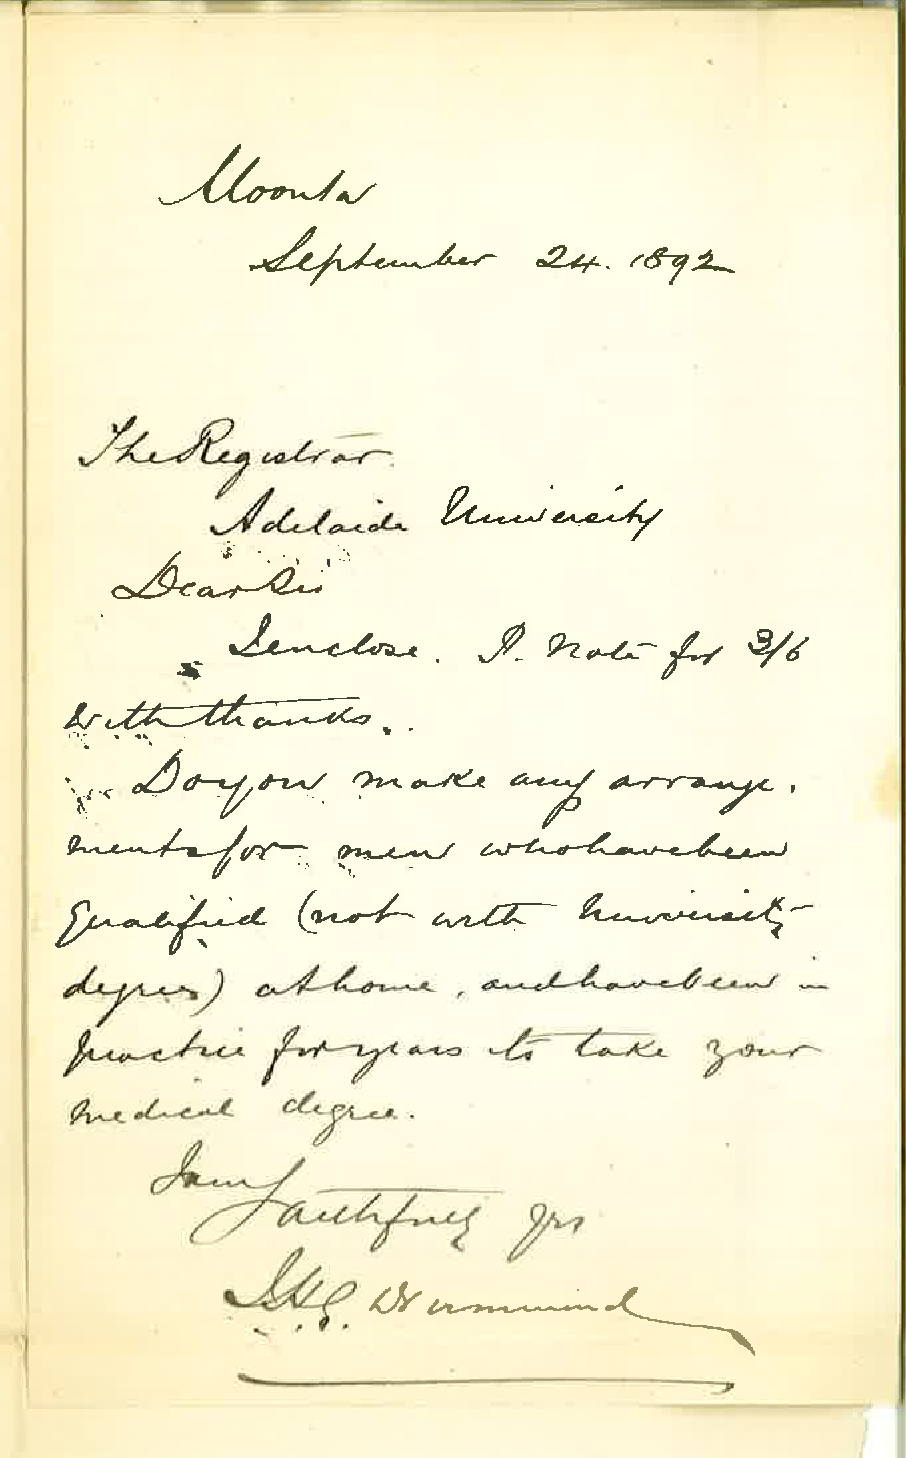 Moonta
September 24. 1892
The Registrar.
Adelaide University
Dear Sir
I enclose. P. Note for 3/6
with thanks.
Do you make any arrange.
ments for men who have been
qualified (not with University
degrees) at home, and have been in
practice for years to take your
medical degree.
I am
Faithfully yrs
Drummond